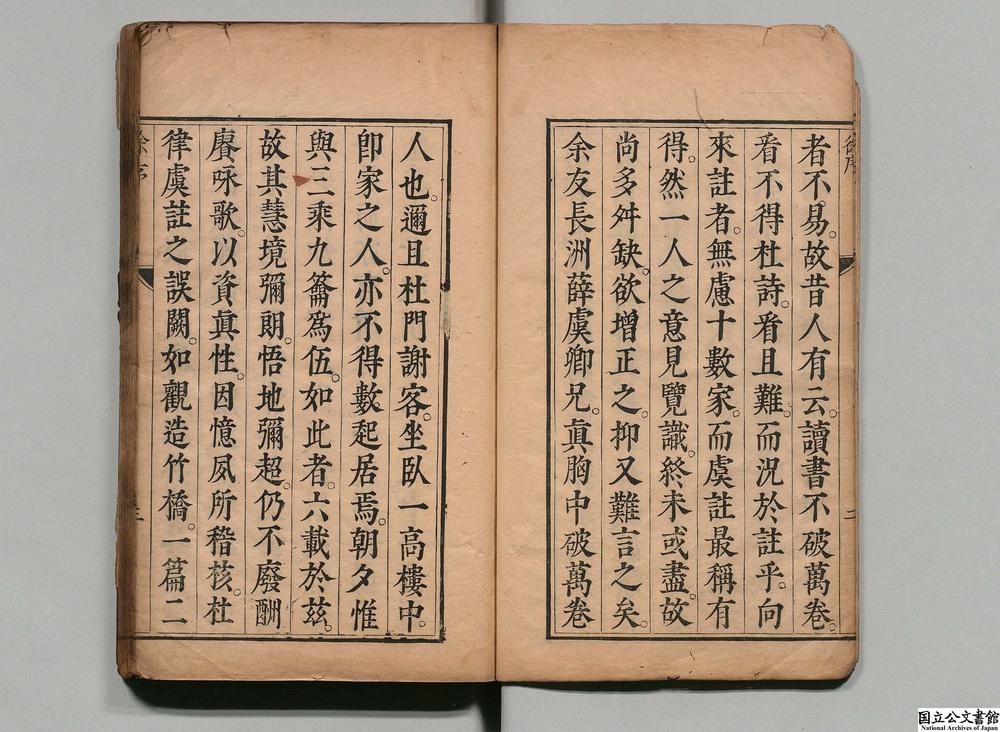 者不易。故昔人有云。讀書不破萬卷。
看不得杜詩。看且難。而況於註乎。向
來註者。無慮十數家。而虞註最稱有
得。然一人之意見覽識。終未或盡。故
尚多舛缺。欲增正之。抑又難言之矣。
余友長洲薛虞卿兄。眞胸中破萬卷
人也。邇且杜門謝客。坐臥一高樓中。
卽家之人。亦不得數起居焉。朝夕惟
與三乘九籥爲伍。如此者。六載於茲。
故其慧境彌朗。悟地彌超。仍不廢酬
賡咏歌。以資眞性。因憶夙所稽核。杜
律虞註之誤闕。如觀造竹橋。一篇二
国立公文書館
National Archives of Japan